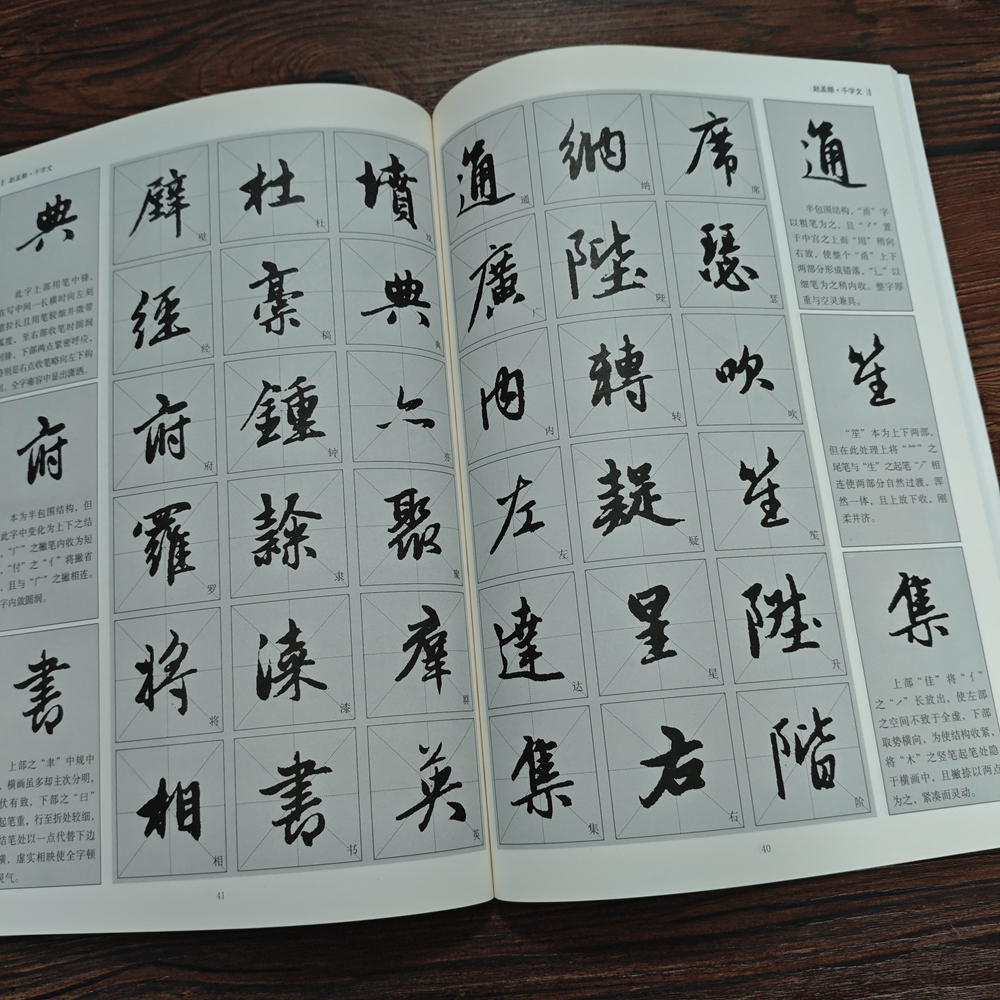 赵孟頫·千字文
席瑟吹笙陞階
席
瑟
吹
笙
升
阶
納陛轉疑星右
纳
陛
转
疑
星
右
通廣內左達集
通
广
内
左
达
集
通
半包围结构，“甬”字
以粗笔为之，且“龴”置
于中宫之上而“用”稍向
右放，使整个“甬”上下
两部分形成错落，“辶”以
细笔为之稍内收。整字厚
重与空灵兼具。
笙
“笙”本为上下两部，
但在此处理上将“⺮”之
尾笔与“生”之起笔“丿”相
连使两部分自然过渡，浑
然一体，且上放下收，刚
柔并济。
集
上部“隹”将“亻”
之“丿”长放出，使左部
之空间不致于全虚，下部
取势横向，为使结构收紧，
将“木”之竖笔起笔处隐
于横画中，且撇捺以两点
为之，紧凑而灵动。
40
赵孟頫·千字文
墳典亦聚羣英
坟
典
亦
聚
群
英
杜稾鍾隸漆書
杜
稿
钟
隶
漆
书
壁經府羅將相
壁
经
府
罗
将
相
典
此字上部用笔中锋，
在写中间一长横时向左则
意拉长且用笔较细并微带
弧度，至右部收笔时圆润
回锋，下部两点紧密呼应，
特别是右点收笔略向左下构
，全字雍容中显出潇洒。
府
本为半包围结构，但
此字中变化为上下之结
，“广”之撇笔内收为短
，“付”之“亻”将撇省
，且与“广”之撇相连。
字内敛圆润。
書
上部之“聿”中规中
，横画虽多却主次分明，
伏有致，下部之“曰”
起笔重，行至折处较细，
结笔处以一点代替下边
横，虚实相映使全字顿
灵气。
41